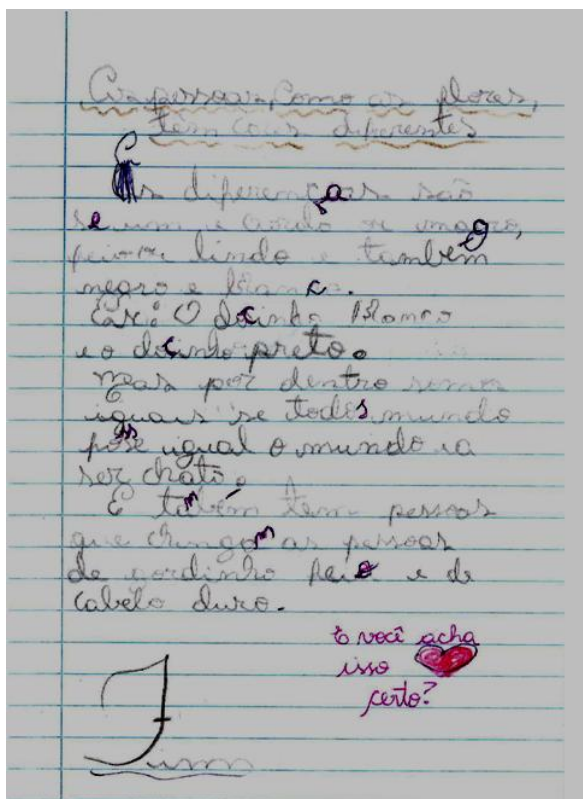 As pessoas, Como as flores,
têm cores diferentes
As diferenças são
se um e Gordo ou magro,
feio ou lindo e também
negro e branco.
Ex: O docinho Branco
e o docinho preto.
Mas por dentro somos
iguais se todos mundo
fosse igual o mundo ia
ser chato.
E também tem pessoas
que chingam as pessoas
de gordinho feio e de
cabelo duro.
E você acha
isso
certo?
Fim